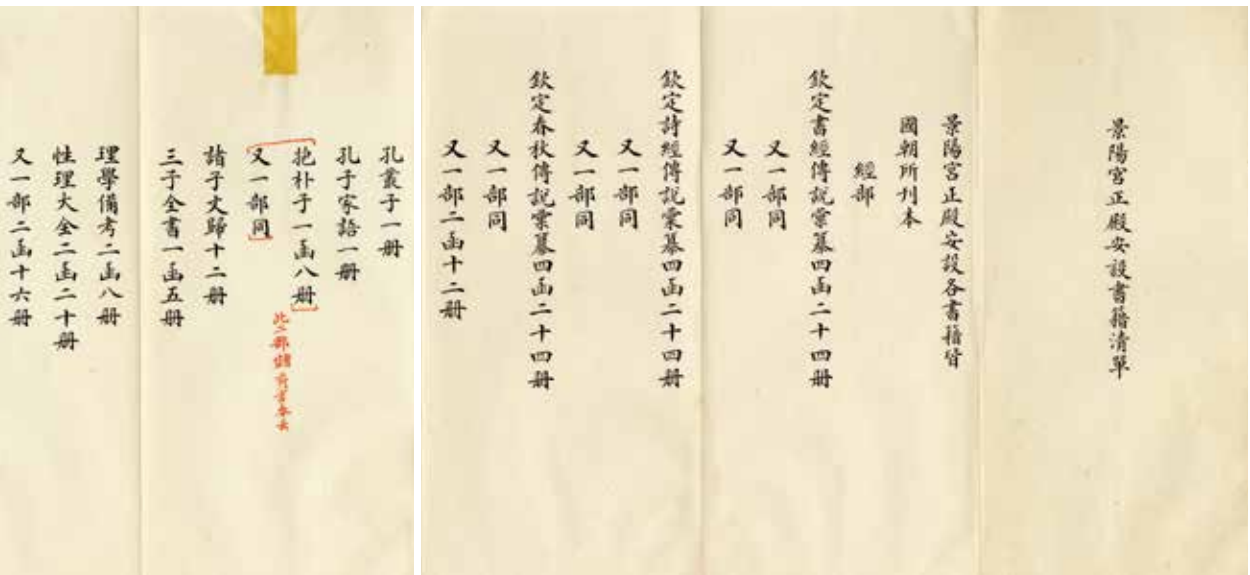 景陽宮正殿安設書籍清單
景陽宮正殿安設各書籍皆
國朝所刊本
經部
欽定書經傳説彙纂四函二十四册
又一部同
又一部同
欽定詩經傳説彙纂四函二十四册
又一部同
又一部同
欽定春秋傳説彙纂四函二十四册
又一部同
又一部二函十二册
孔叢子一册
孔子家語一册
抱朴子一函八册
又一部同
此二部
諸子文歸十二册
三子全書一函五册
理學備考二函八册
性理大全二函二十册
又一部二函十六册